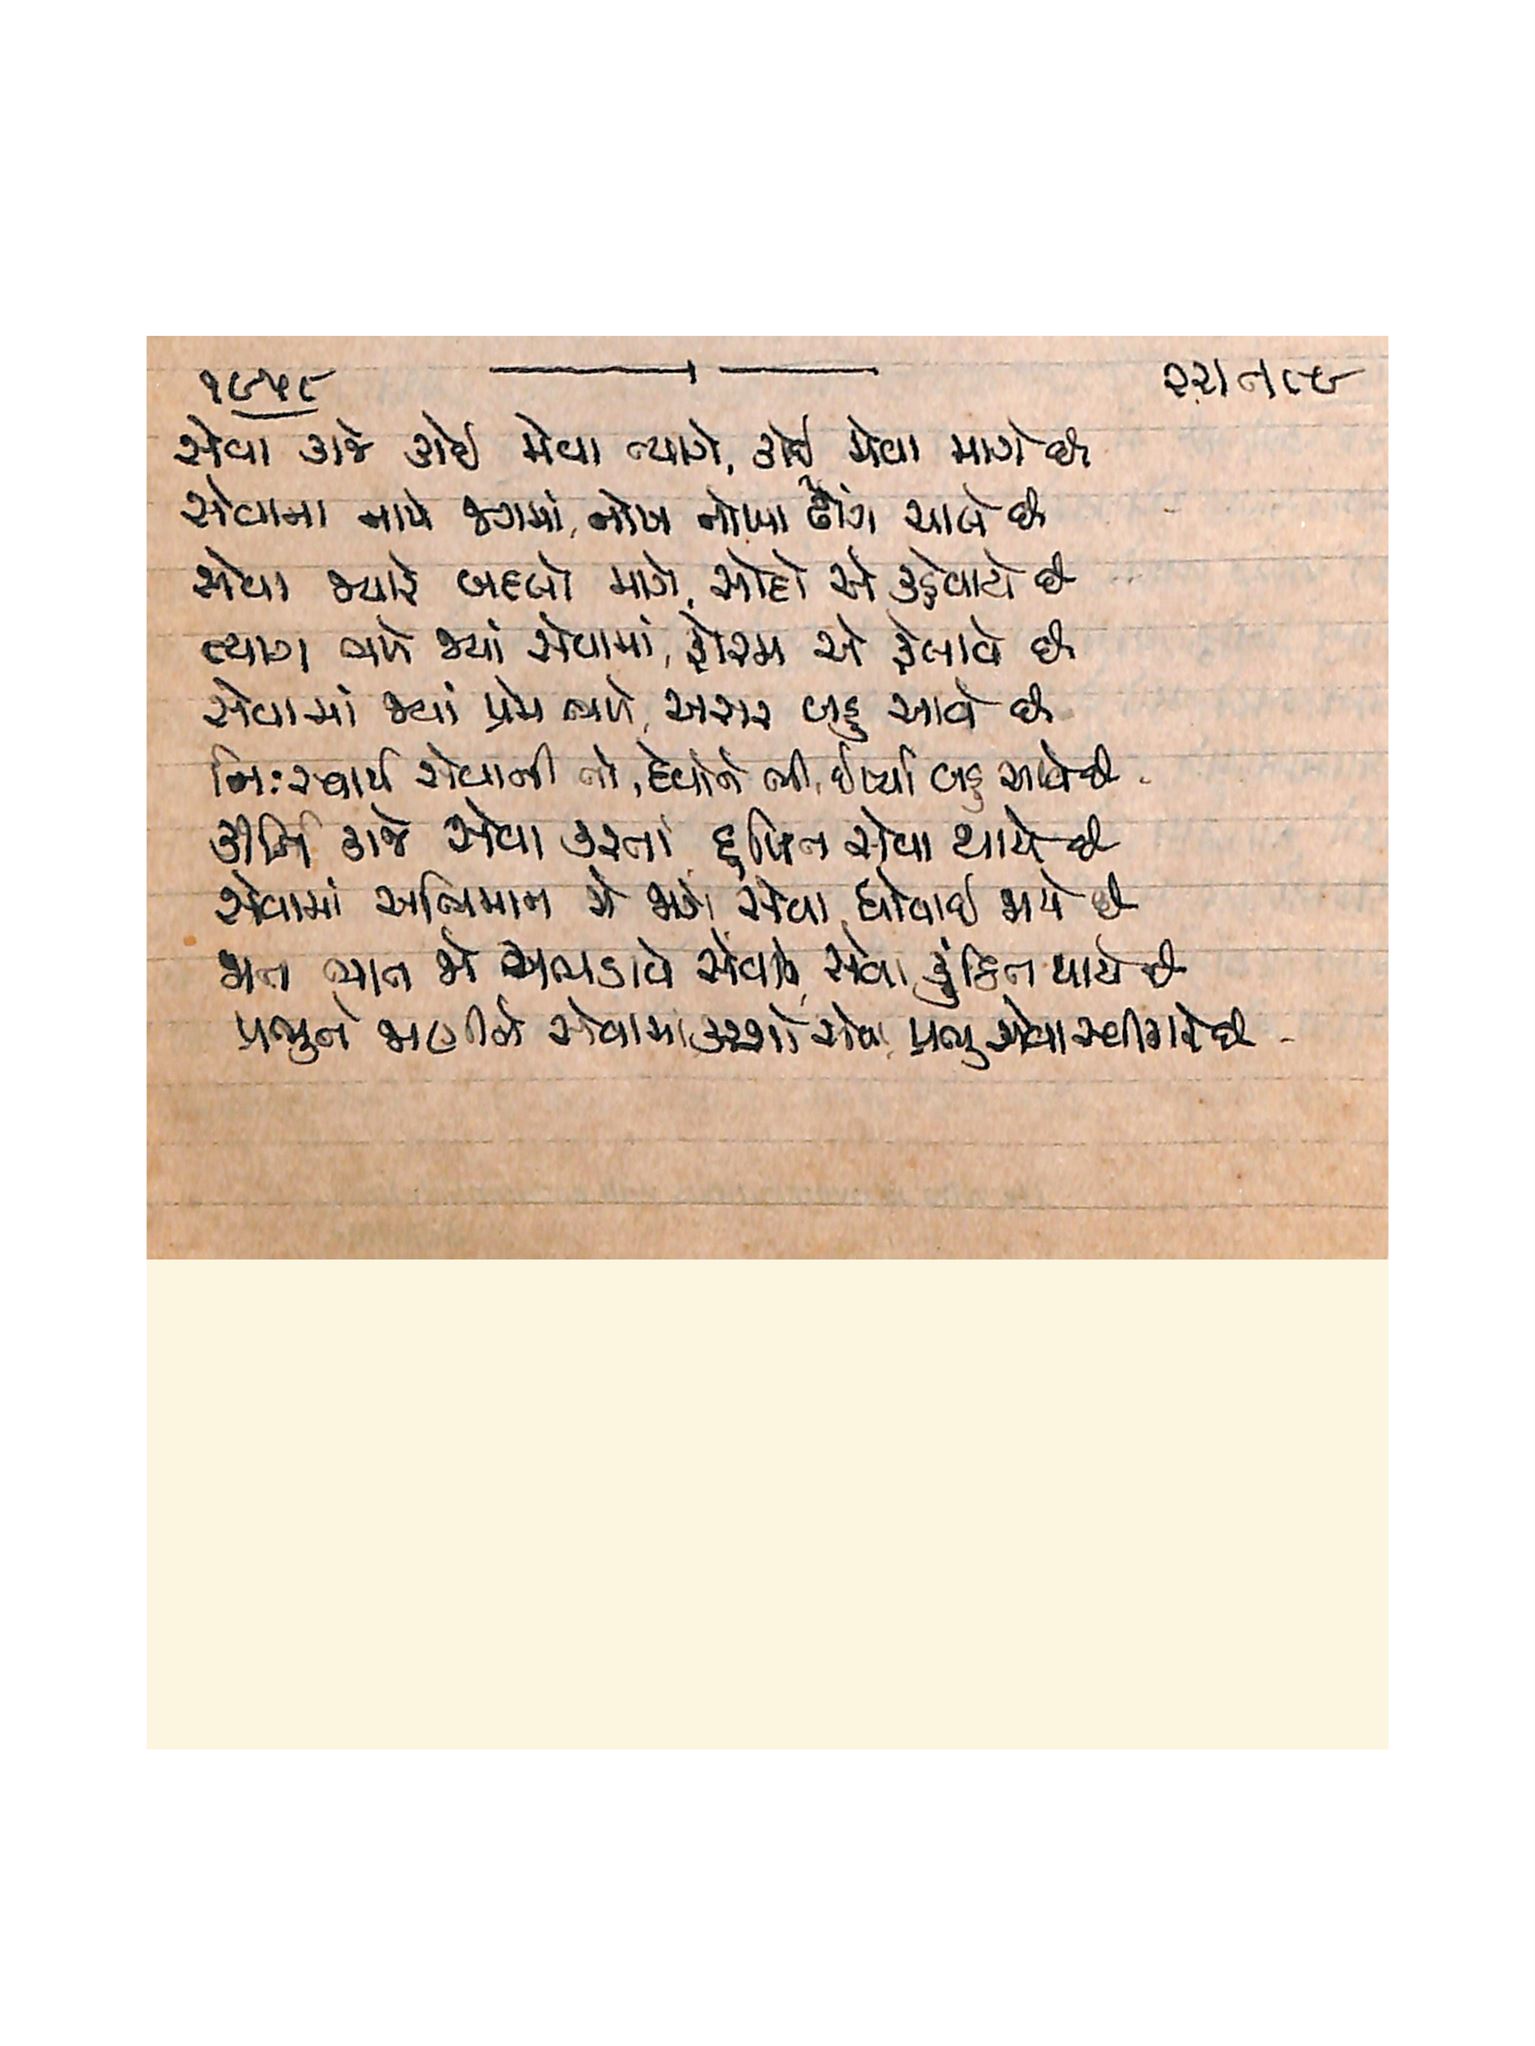 ૧૭૫૯
સેવા કાજે કોઈ મેવા ત્યાગે, કોઈ મેવા માગે છે
સેવાના નામે જગમાં, નોખ નોખા ઢોંગ ચાલે છે
સેવા જ્યારે બદલો માગે, સોદો એ કહેવાયે છે
ત્યાગ ભળે જ્યાં સેવામાં, ફોરમ એ ફેલાવે છે
સેવામાં જ્યાં પ્રેમ ભળે, અસર બહુ આવે છે
નિઃસ્વાર્થ સેવાની તો, દેવોને ભી ઈર્ષ્યા બહુ આવે છે
કીર્તિ કાજે સેવા કરતાં, દુષિત સેવા થાયે છે
સેવામાં અભિમાન જો જાગે, સેવા ધોવાઈ જાયે છે
જાત ભાત જો અભડાવે સેવા, સેવા કુંઠિત થાયે છે
પ્રભુને જાણીને સેવામાં કરશો સેવા, પ્રભુ સેવા સ્વીકારે છે